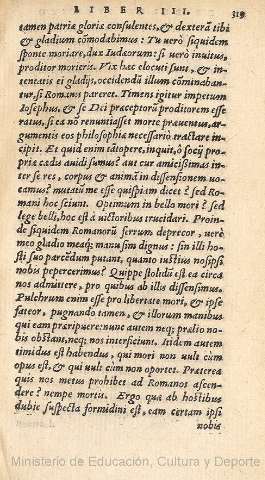 LIBER III. 319
tamen patriæ gloriæ consulentes, & dexterã tibi
& gladium cõmodabimus: Tu uerò siquidem
sponte moriare, dux Iudæorum: si uerò inuitus,
proditor morieris. Vix hæc elocuti sunt, & in-
tentatis ei gladijs, occidendũ illum cõminaban-
tur, si Romanis pareret. Timens igitur impetum
Iosephus, & se Dei præceptorũ proditorem esse
ratus, si ea nõ renuntiasset morte præuentus, ar-
gumentis eos philosophiæ necessariò tractare in-
cipit. Et quid enim tãtopere, inquit, ô socij pro-
priæ cædis auidi sumus? aut cur amicissimas in-
ter se res, corpus & animã in dissensionem uo-
camus? mutatũ me esse quispiam dicet? sed Ro-
mani hoc sciunt. Optimum in bello mori? sed
lege belli, hoc est à uictoribus trucidari. Proin-
de siquidem Romanorũ ferrum deprecor, uerè
meo gladio meaq́; manu sim dignus: sin illi ho-
sti suo parcẽdum putant, quanto iustius nosipsi
nobis pepercerimus? Quippe stolidũ est ea circa
nos admittere, pro quibus ab illis dissensimus.
Pulchrum enim esse pro libertate mori, & ipse
fateor, pugnando tamen, & illorum manibus
qui eam præripuere: nunc autem neq; prælio no-
bis obstant, neq; nos interficiunt. Itidem autem
timidus est habendus, qui mori non uult cùm
opus est, & qui uult cùm non oportet. Præterea
quis nos metus prohibet ad Romanos ascen-
dere? nempe mortis. Ergo quæ ab hostibus
dubiè suspecta formidini est, eam certam ipsi
nobis
Ministerio de Educación, Cultura y Deporte